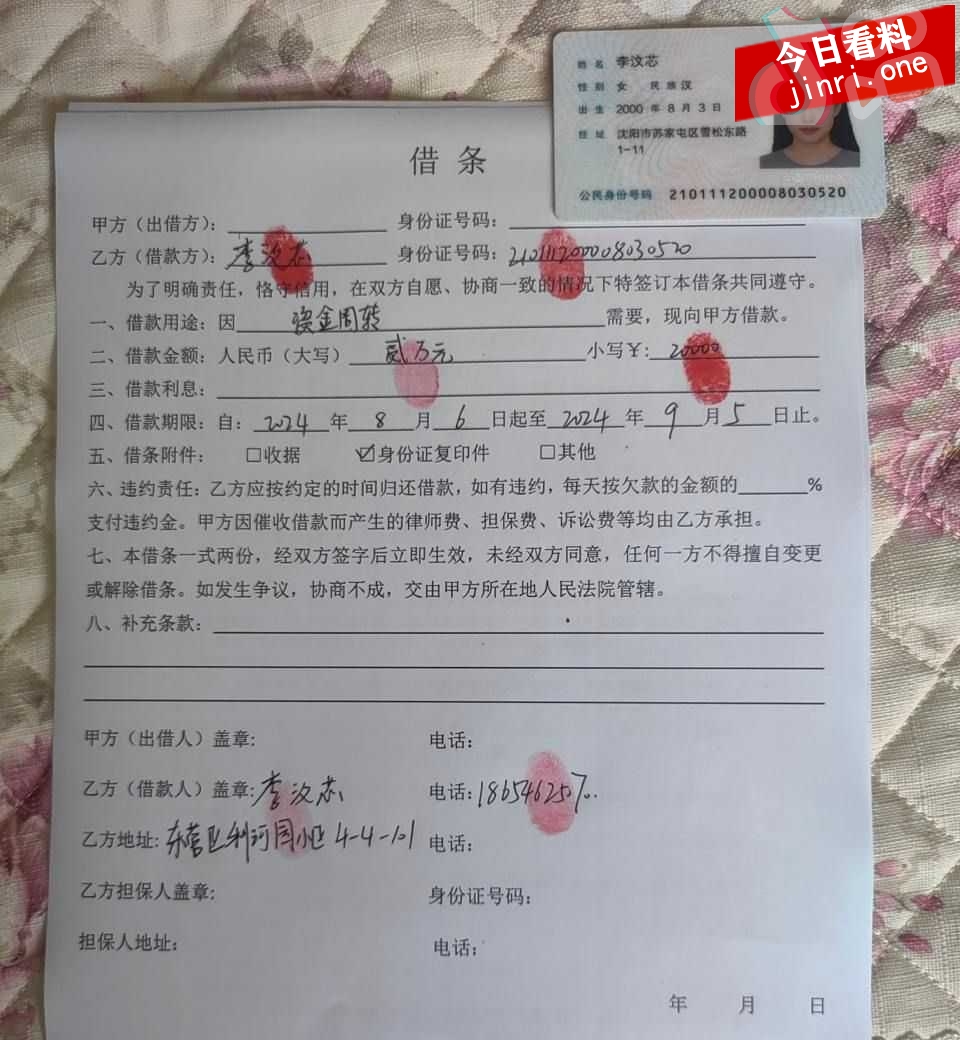 今日看料
jinri.one
姓名
性别 女 民族 汉
出生
住址
公民身份号码
借条
甲方（出借方）： 身份证号码：
乙方（借款方）： 身份证号码：
为了明确责任，恪守信用，在双方自愿、协商一致的情况下特签订本借条共同遵守。
一、借款用途：因 资金周转 需要，现向甲方借款。
二、借款金额：人民币（大写） 贰万元 小写￥: 20000
三、借款利息：
四、借款期限：自：2024年8月6日起至2024年9月5日止。
五、借条附件： □收据 ☑身份证复印件 □其他
六、违约责任：乙方应按约定的时间归还借款，如有违约，每天按欠款的金额的 %
支付违约金。甲方因催收借款而产生的律师费、担保费、诉讼费等均由乙方承担。
七、本借条一式两份，经双方签字后立即生效，未经双方同意，任何一方不得擅自变更
或解除借条。如发生争议，协商不成，交由甲方所在地人民法院管辖。
八、补充条款：
甲方（出借人）盖章: 电话：
乙方（借款人）盖章: 电话：
乙方地址: 电话：
乙方担保人盖章: 身份证号码：
担保人地址: 电话：
年 月 日